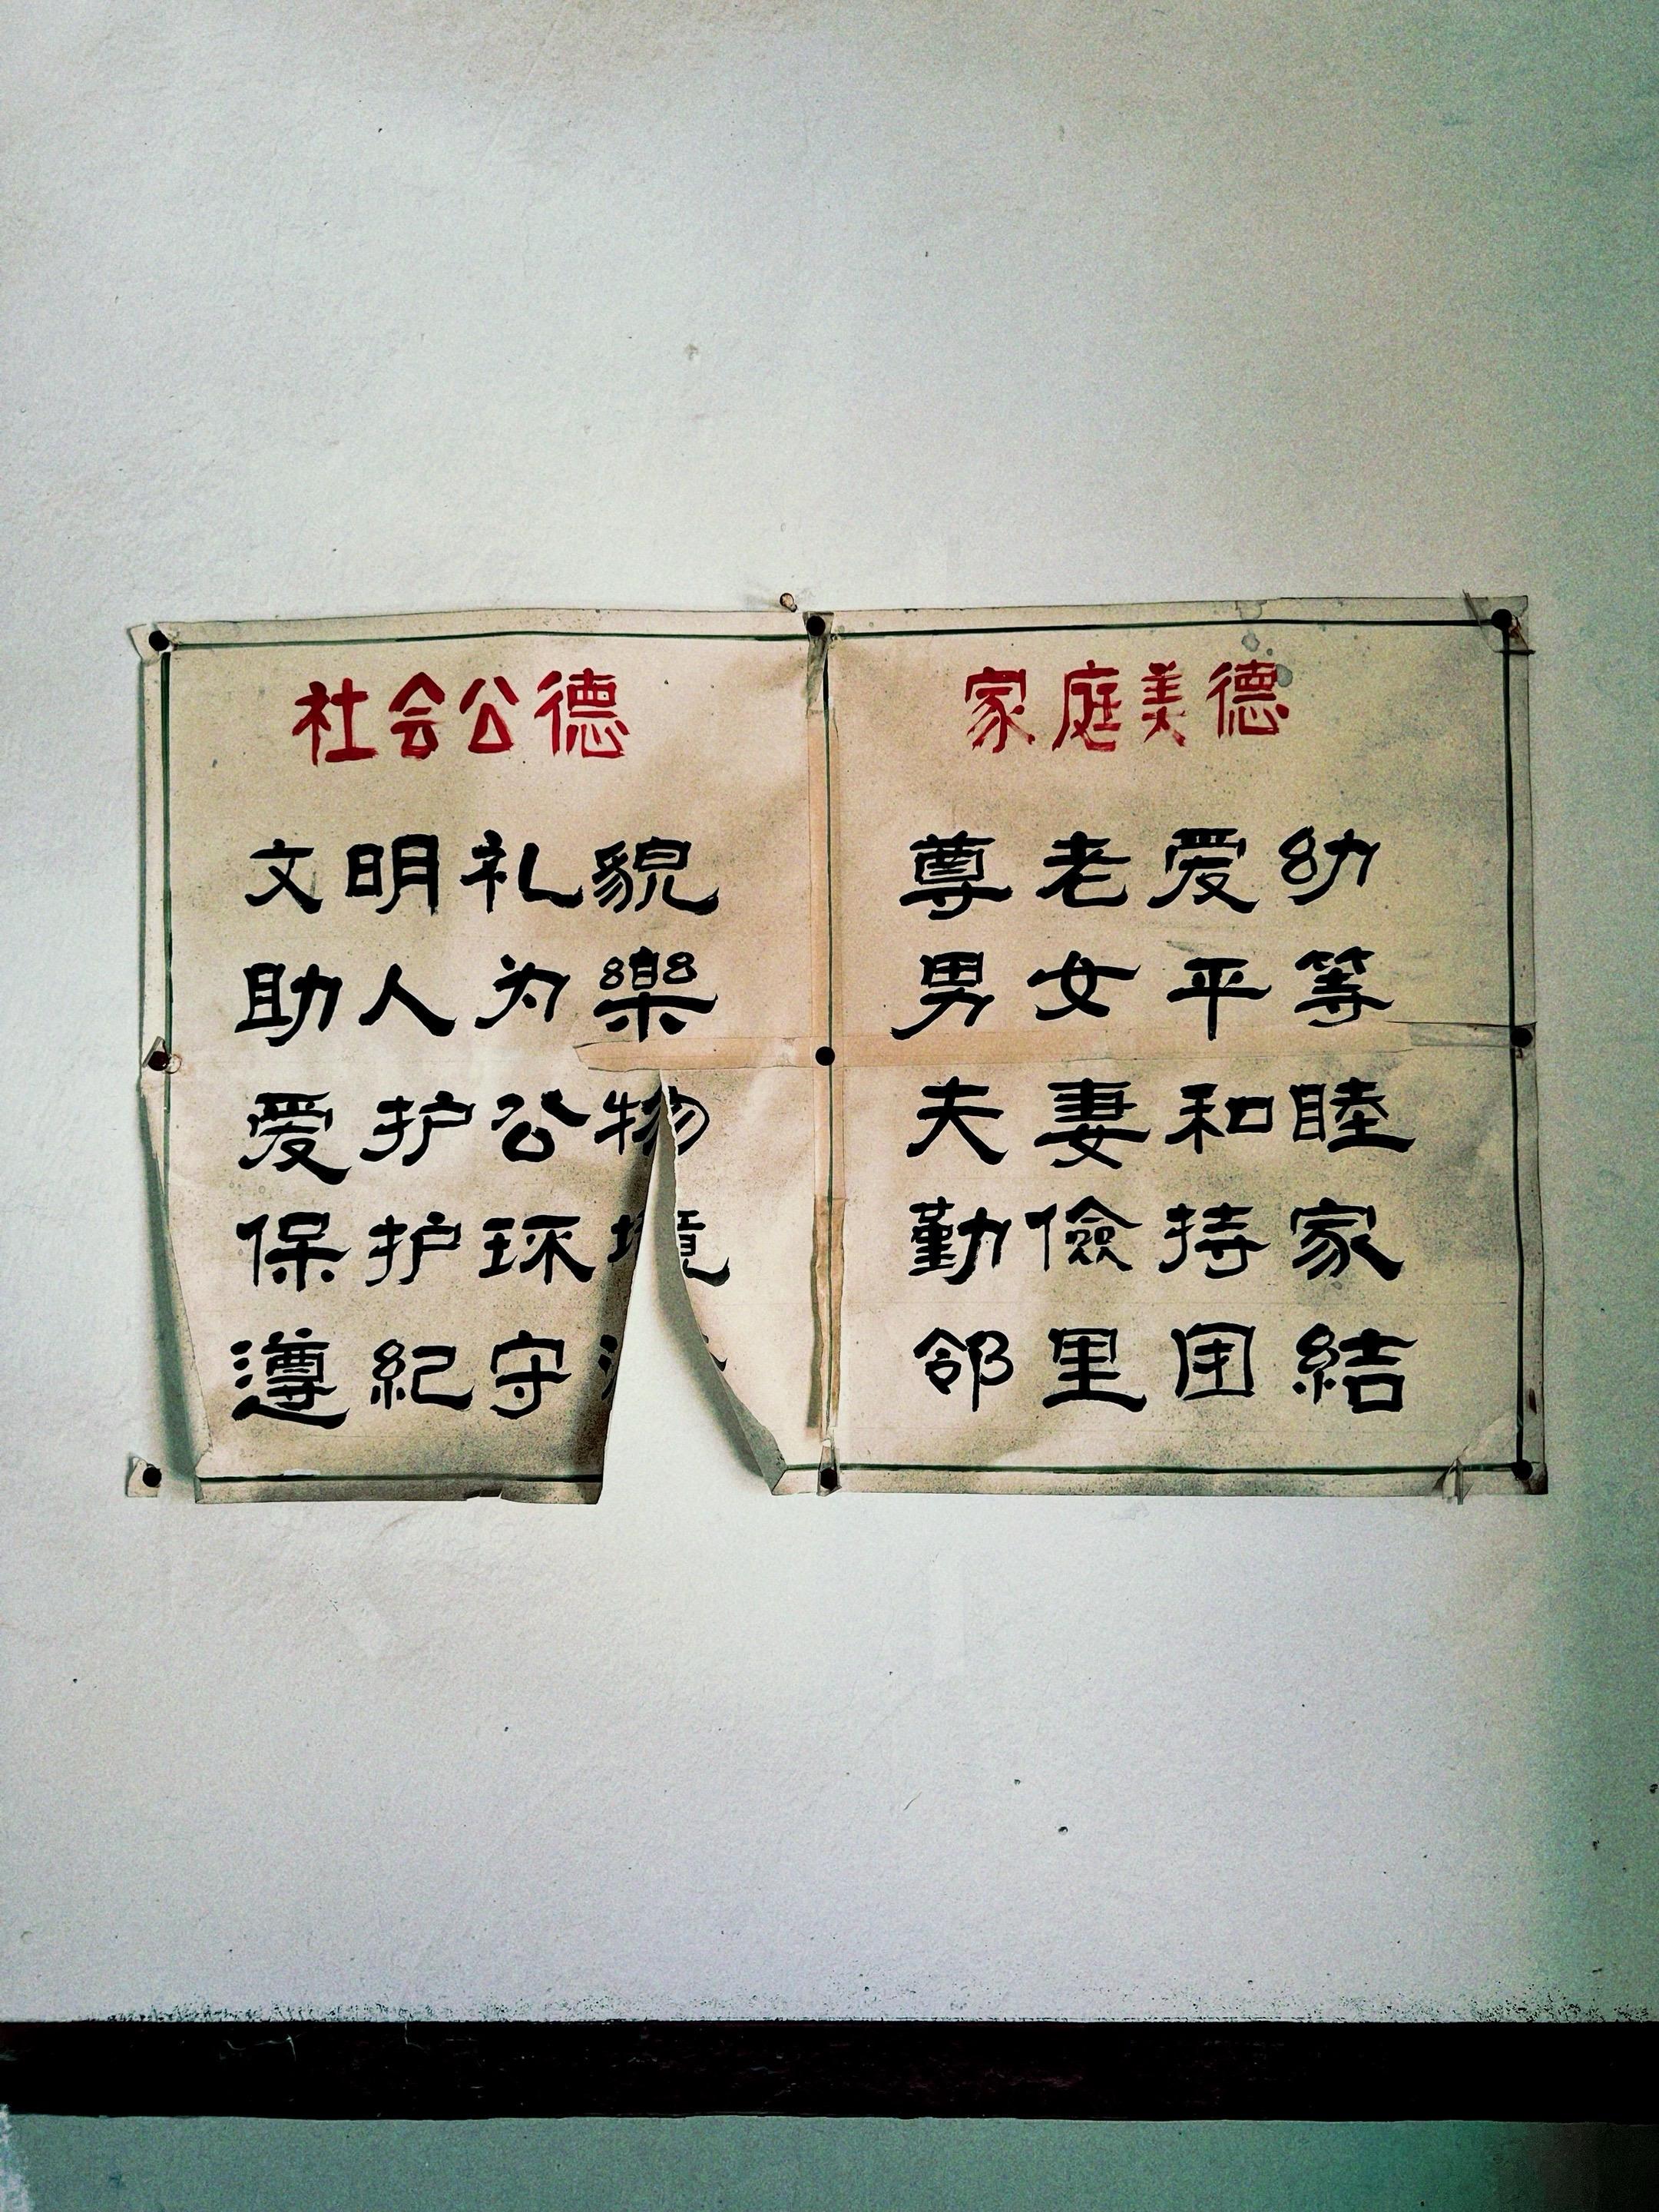 社会公德
文明礼貌
助人为樂
爱护公物
保护环境
遵紀守
家庭美德
尊老爱幼
男女平等
夫妻和睦
勤儉持家
邻里团結